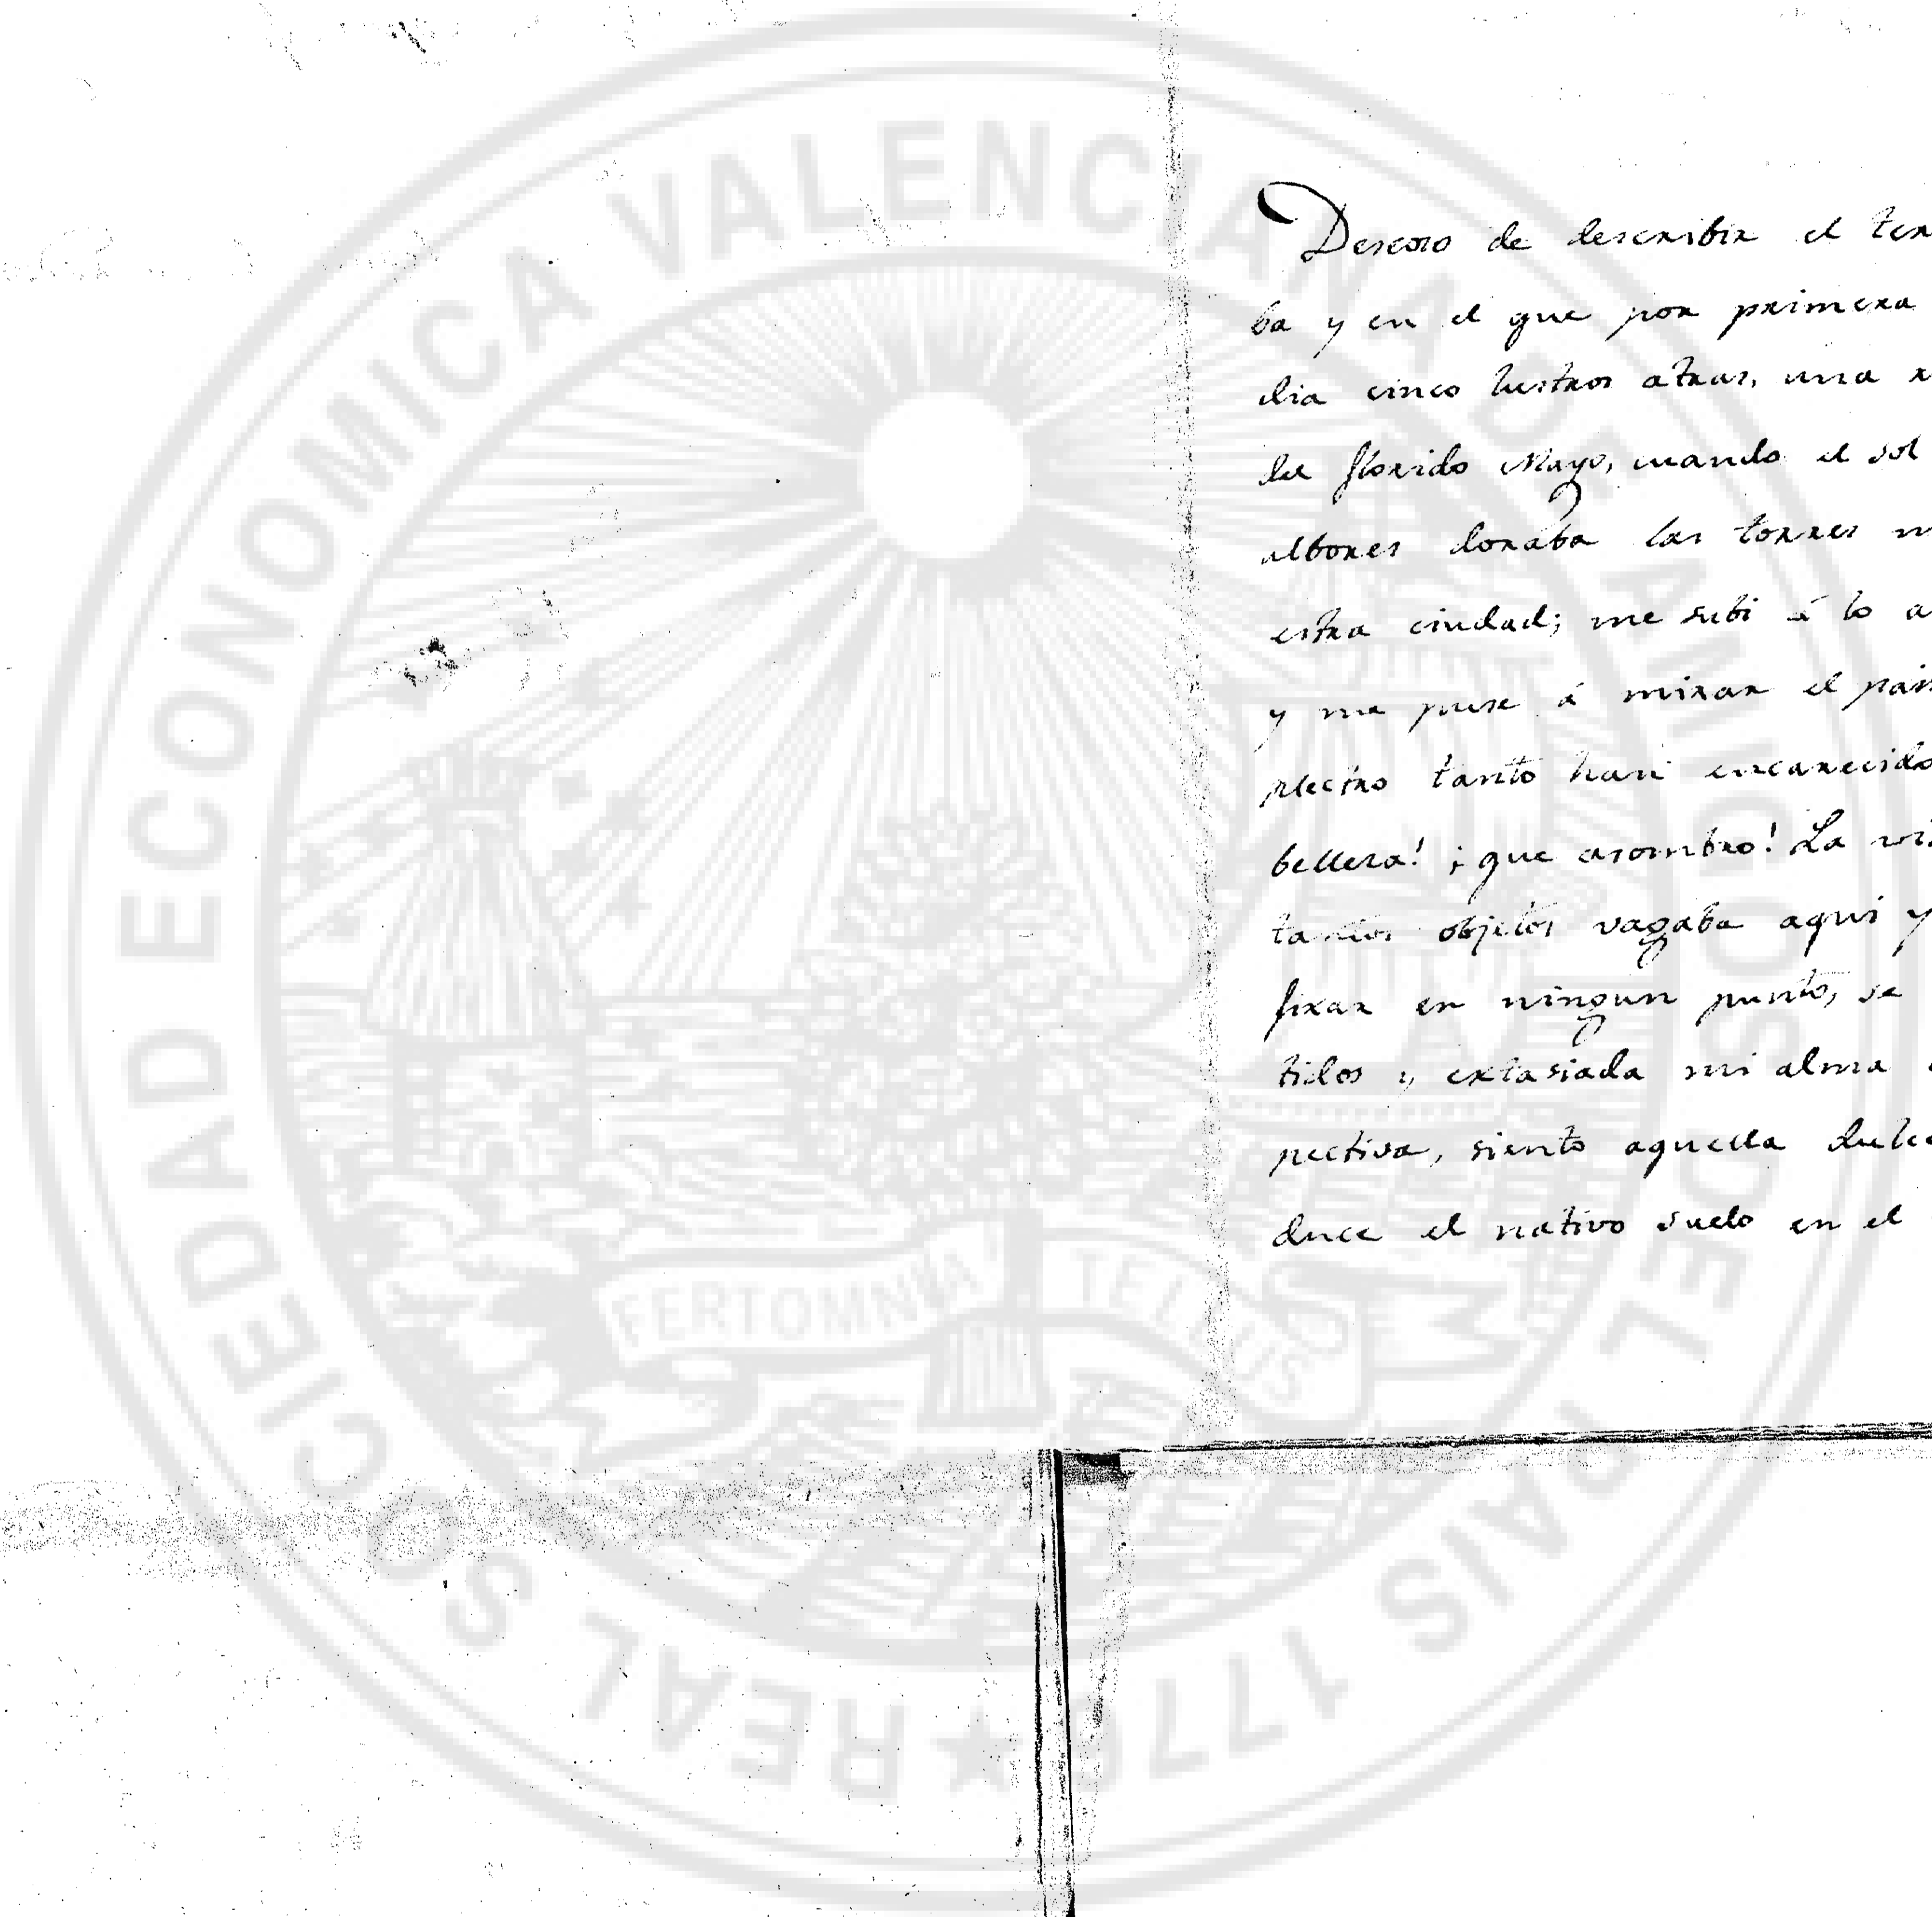 Deseoso de describir el
ba y en el que por primera
dia cinco lustros atras, una
del florido Mayo, cuando el sol
albores doraba las torres
estra ciudad; me subi á lo
y me puse á mirar el
plectro tanto han encarecido
belleza! ¡que asombro! La
tantos objetos vagaba aqui y
fixar en ningun punto, se
tidos y extasiada mi alma
pectiva, siento aquella
duce el nativo suelo en el
REAL SOCIEDAD ECONOMICA VALENCIANA DE AMIGOS DEL PAIS 1776
FERT OMNIA TELLUS